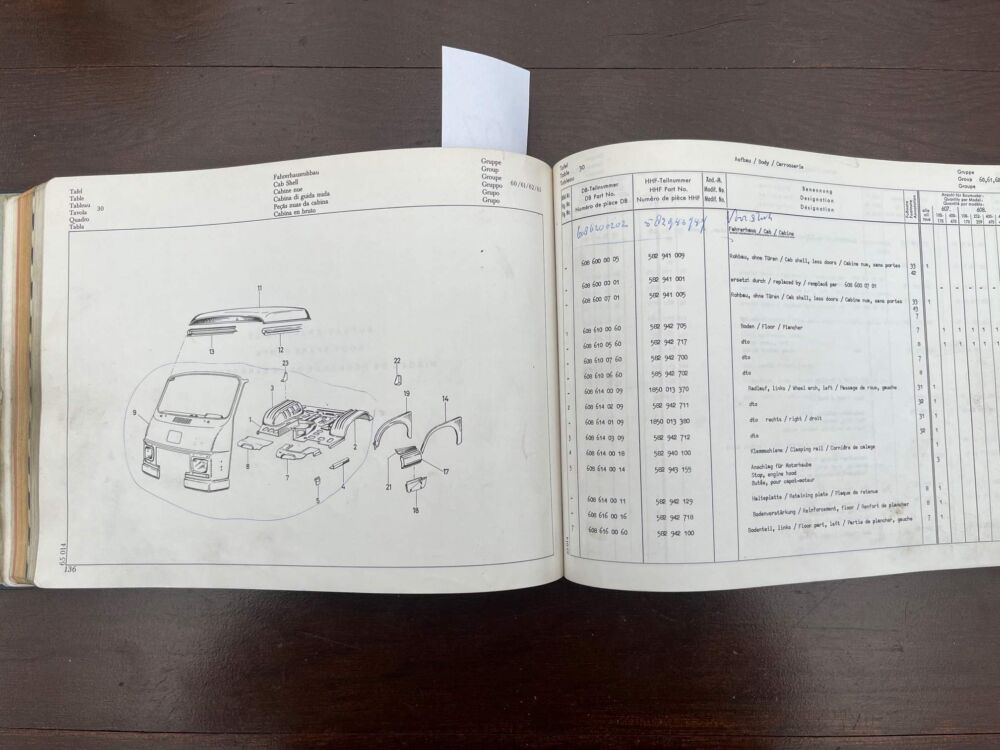 Tafel
Table
Tableau 30
Tavola
Quadro
Tabla
Fahrerhausrohbau
Cab Shell
Cabine nue
Cabina di guida nuda
Cabina en bruto
Gruppe
Group
Groupe 60/61/62/63
Gruppo
Grupo
Grupo
11
13
12
23
22
3
19
14
9
1
2
8
8
7
4
5
21
17
18
65 014
136
Tafel
Table 30
Tableau
Aufbau / Body / Carrosserie
Gruppe
Group 60,61,6
Groupe
DB-Teilnummer
DB Part No.
Numéro de pièce DB
HHF-Teilnummer
HHF Part No.
Numéro de pièce HHF
Änd.-M.
Modif. No.
Modif. No.
Benennung
Designation
Désignation
607. 608.
Fahrerhaus / Cab / Cabine
608 600 00 05 582 941 009 Rohbau, ohne Türen / Cab shell, less doors / Cabine nue, sans portes 33 1
42
608 600 00 01 582 941 001 ersetzt durch / replaced by / remplacé par 608 600 07 01
608 600 07 01 582 941 005 Rohbau, ohne Türen / Cab shell, less doors / Cabine nue, sans portes 33 1
43
7
1 608 610 00 60 582 942 705 Boden / Floor / Plancher 7
608 610 05 60 582 942 717 dto 8
608 610 07 60 582 942 700 dto 7
608 610 06 60 585 942 702 dto 8
608 614 00 09 1850 013 370 Radlauf, links / Wheel arch, left / Passage de roue, gauche 31 1
2 608 614 02 09 582 942 711 dto 32 1
608 614 01 09 1850 013 380 dto rechts / right / droit 31 1
3 608 614 03 09 582 942 712 dto 32 1
4 608 614 00 18 582 940 100 Klemmschiene / Clamping rail / Cornière de calage 1
5 608 614 00 14 582 943 155 Anschlag für Motorhaube 3
Stop, engine hood
Butée, pour capot-moteur
608 614 00 11 582 942 129 Halteplatte / Retaining plate / Plaque de retenue 8 1
608 616 00 16 582 942 718 Bodenverstärkung / Reinforcement, floor / Renfort de plancher 8 1
7 608 616 00 60 582 942 100 Bodenteil, links / Floor part, left / Partie de plancher, gauche 7 1